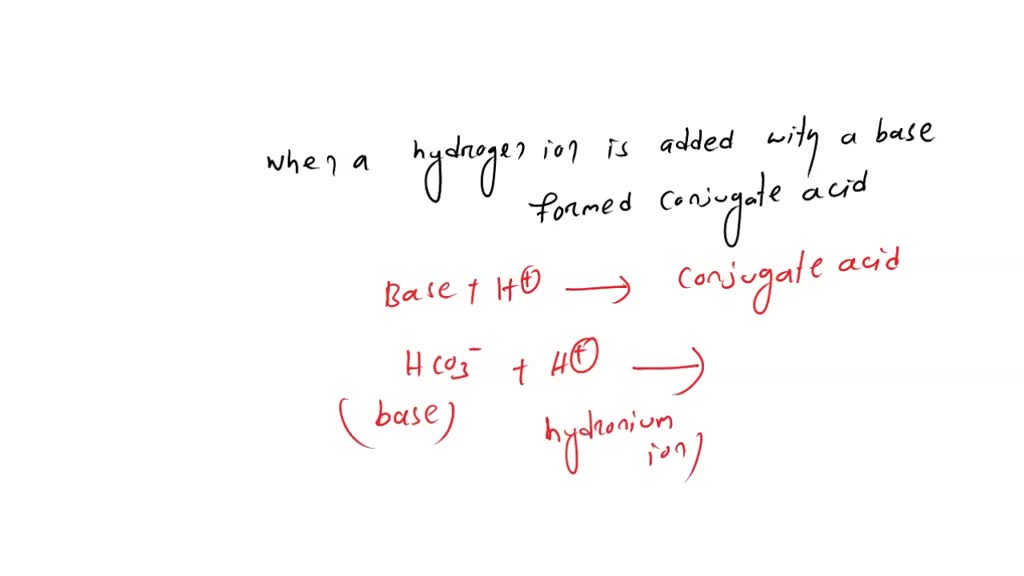 when a hydrogen ion is added with a base
formed conjugate acid
Base + H⊕ → conjugate acid
HCO₃⁻ + H⊕ →
(base) hydronium
ion)